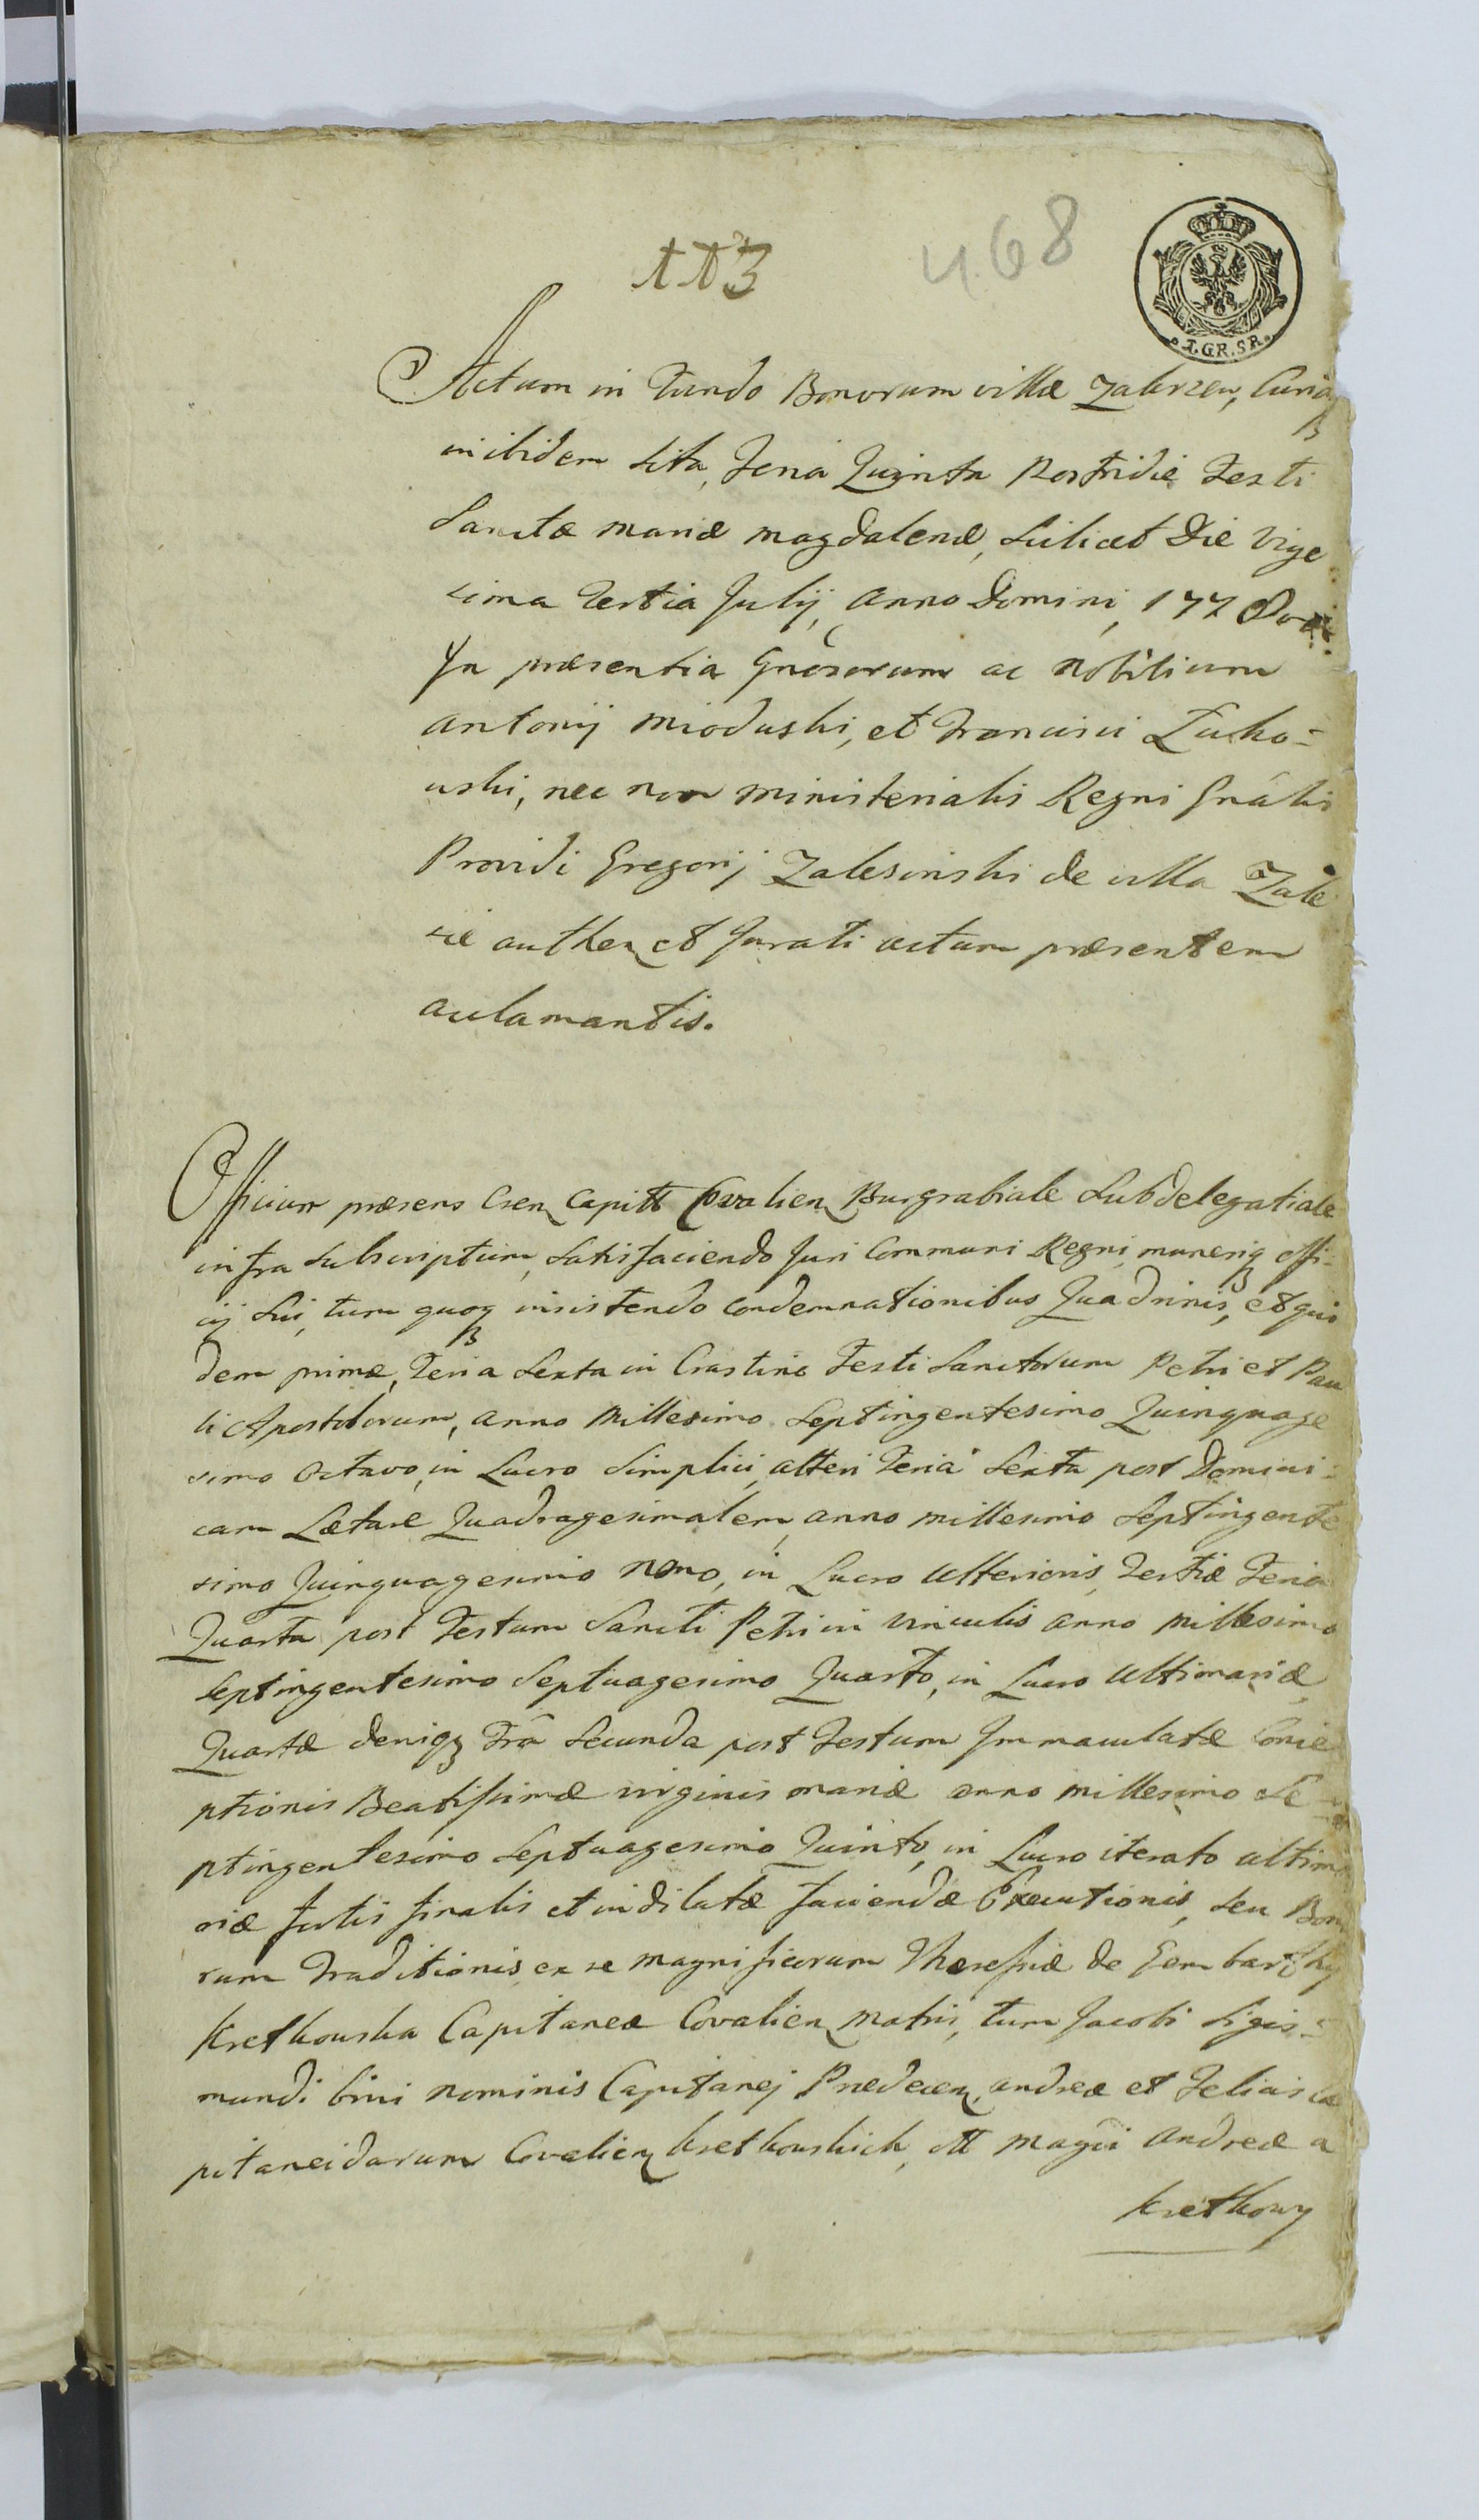 ttt3
468
I.GR.SR.
Actum in Fundo Bonorum villæ Zakrzew, Curia
inibidem sita, Feria Quinta Postridie Festi
Sanctæ mariæ magdalenæ, scilicet Die Vige
sima Tertia Julij, Anno Domini, 177
In præsentia Gnosorum ac Nobilium
Antonij Mioduski, et Francisci Zuko-
wski, nec non ministerialis Regni Gnalis
Providi Gregorij Zalesinski de villa Zale
sie authen et Jurati actum præsentem
aclamantis.
Officium præsens Csen Capitt Covalien Burgrabiale Subdelegatiale
infra subscriptum, satisfaciendo Juri Communi Regni, munerisq offi-
cij sui, tum quoq insistendo condemnationibus Quadrinis, et qui
dem primæ, Feria Sexta in Crastino Festi Sanctorum Petri et Pau
li Apostolorum, anno Millesimo Septingentesimo Quinquage
simo Octavo, in Lucro simplici, alteri Feria Sexta post Domini-
cam Lætare Quadragesimalem, anno millesimo Septingente
simo Quinquagesimo nono, in Lucro Ulterioris, Tertiæ Feria
Quarta post Festum Sancti Petri in vinculis anno millesimo
Septingentesimo Septuagesimo Quarto, in Lucro Ultimariæ,
Quartæ deniq Fra Secunda post Festum Immaculatæ Conce
ptionis Beatissimæ virginis mariæ anno millesimo Se-
ptingentesimo Septuagesimo Quinto, in Lucro iterato ultima
riæ Justis finalis et indilatæ faciendæ Executionis, seu Bono
rum Traditionis, ex re magnificorum Theressiæ de Gembarthy
Kretkowska Capitaneæ Covalien matris, tum Jacobi Sigis-
mundi bini nominis Capitanej Prædecen, andreæ et Felicis Ca
pitaneidarum Covalien Kretkowskich, ott magci Andreæ a
Kretkowy